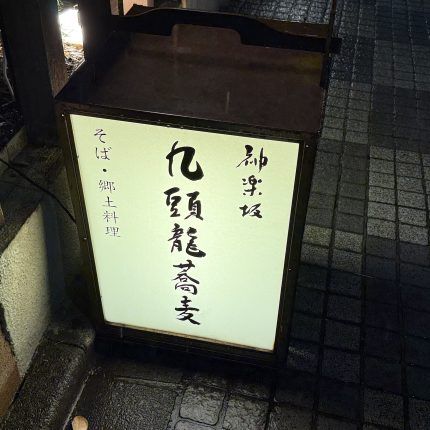 神楽坂
九頭龍蕎麦
そば・郷土料理